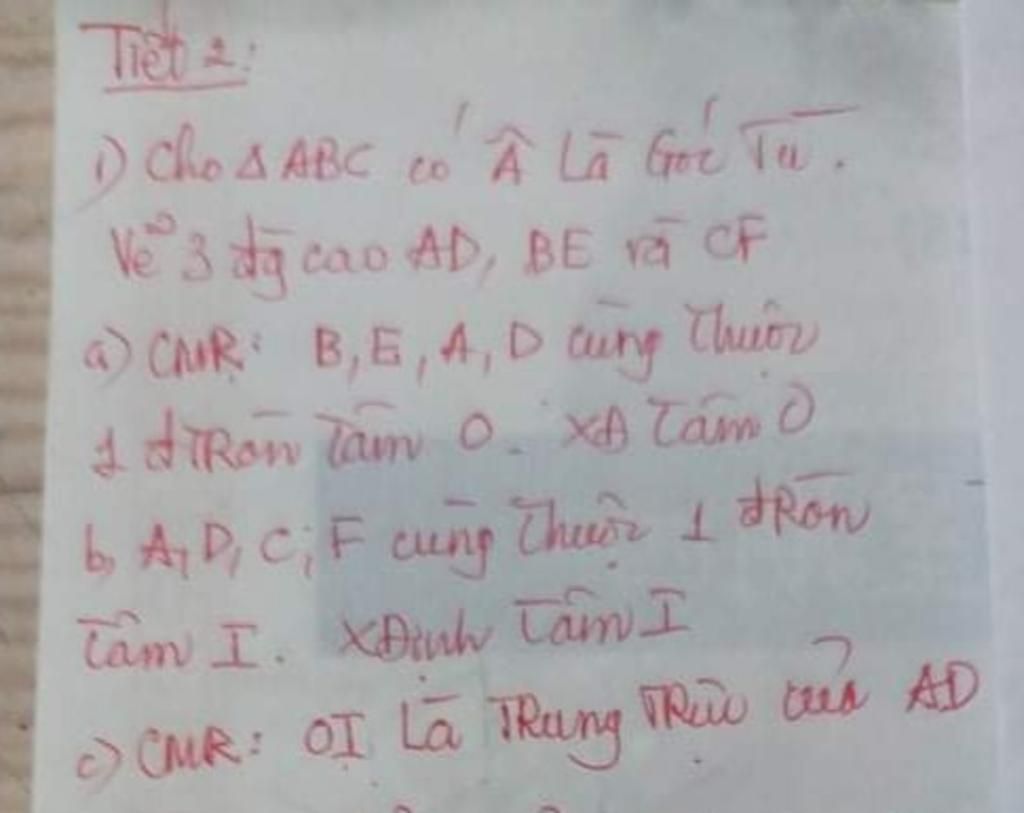 Tiết 2:
1) Cho Δ ABC có Â Là Góc Tù.
Vẽ 3 đg cao AD, BE và CF
a) CMR: B, E, A, D cùng Thuộc
1 đTRòn Tâm O. XĐ Tâm O
b, A, D, C, F cùng Thuộc 1 đRòn
Tâm I. XĐịnh Tâm I
c) CMR: OI Là TRung TRực của AD